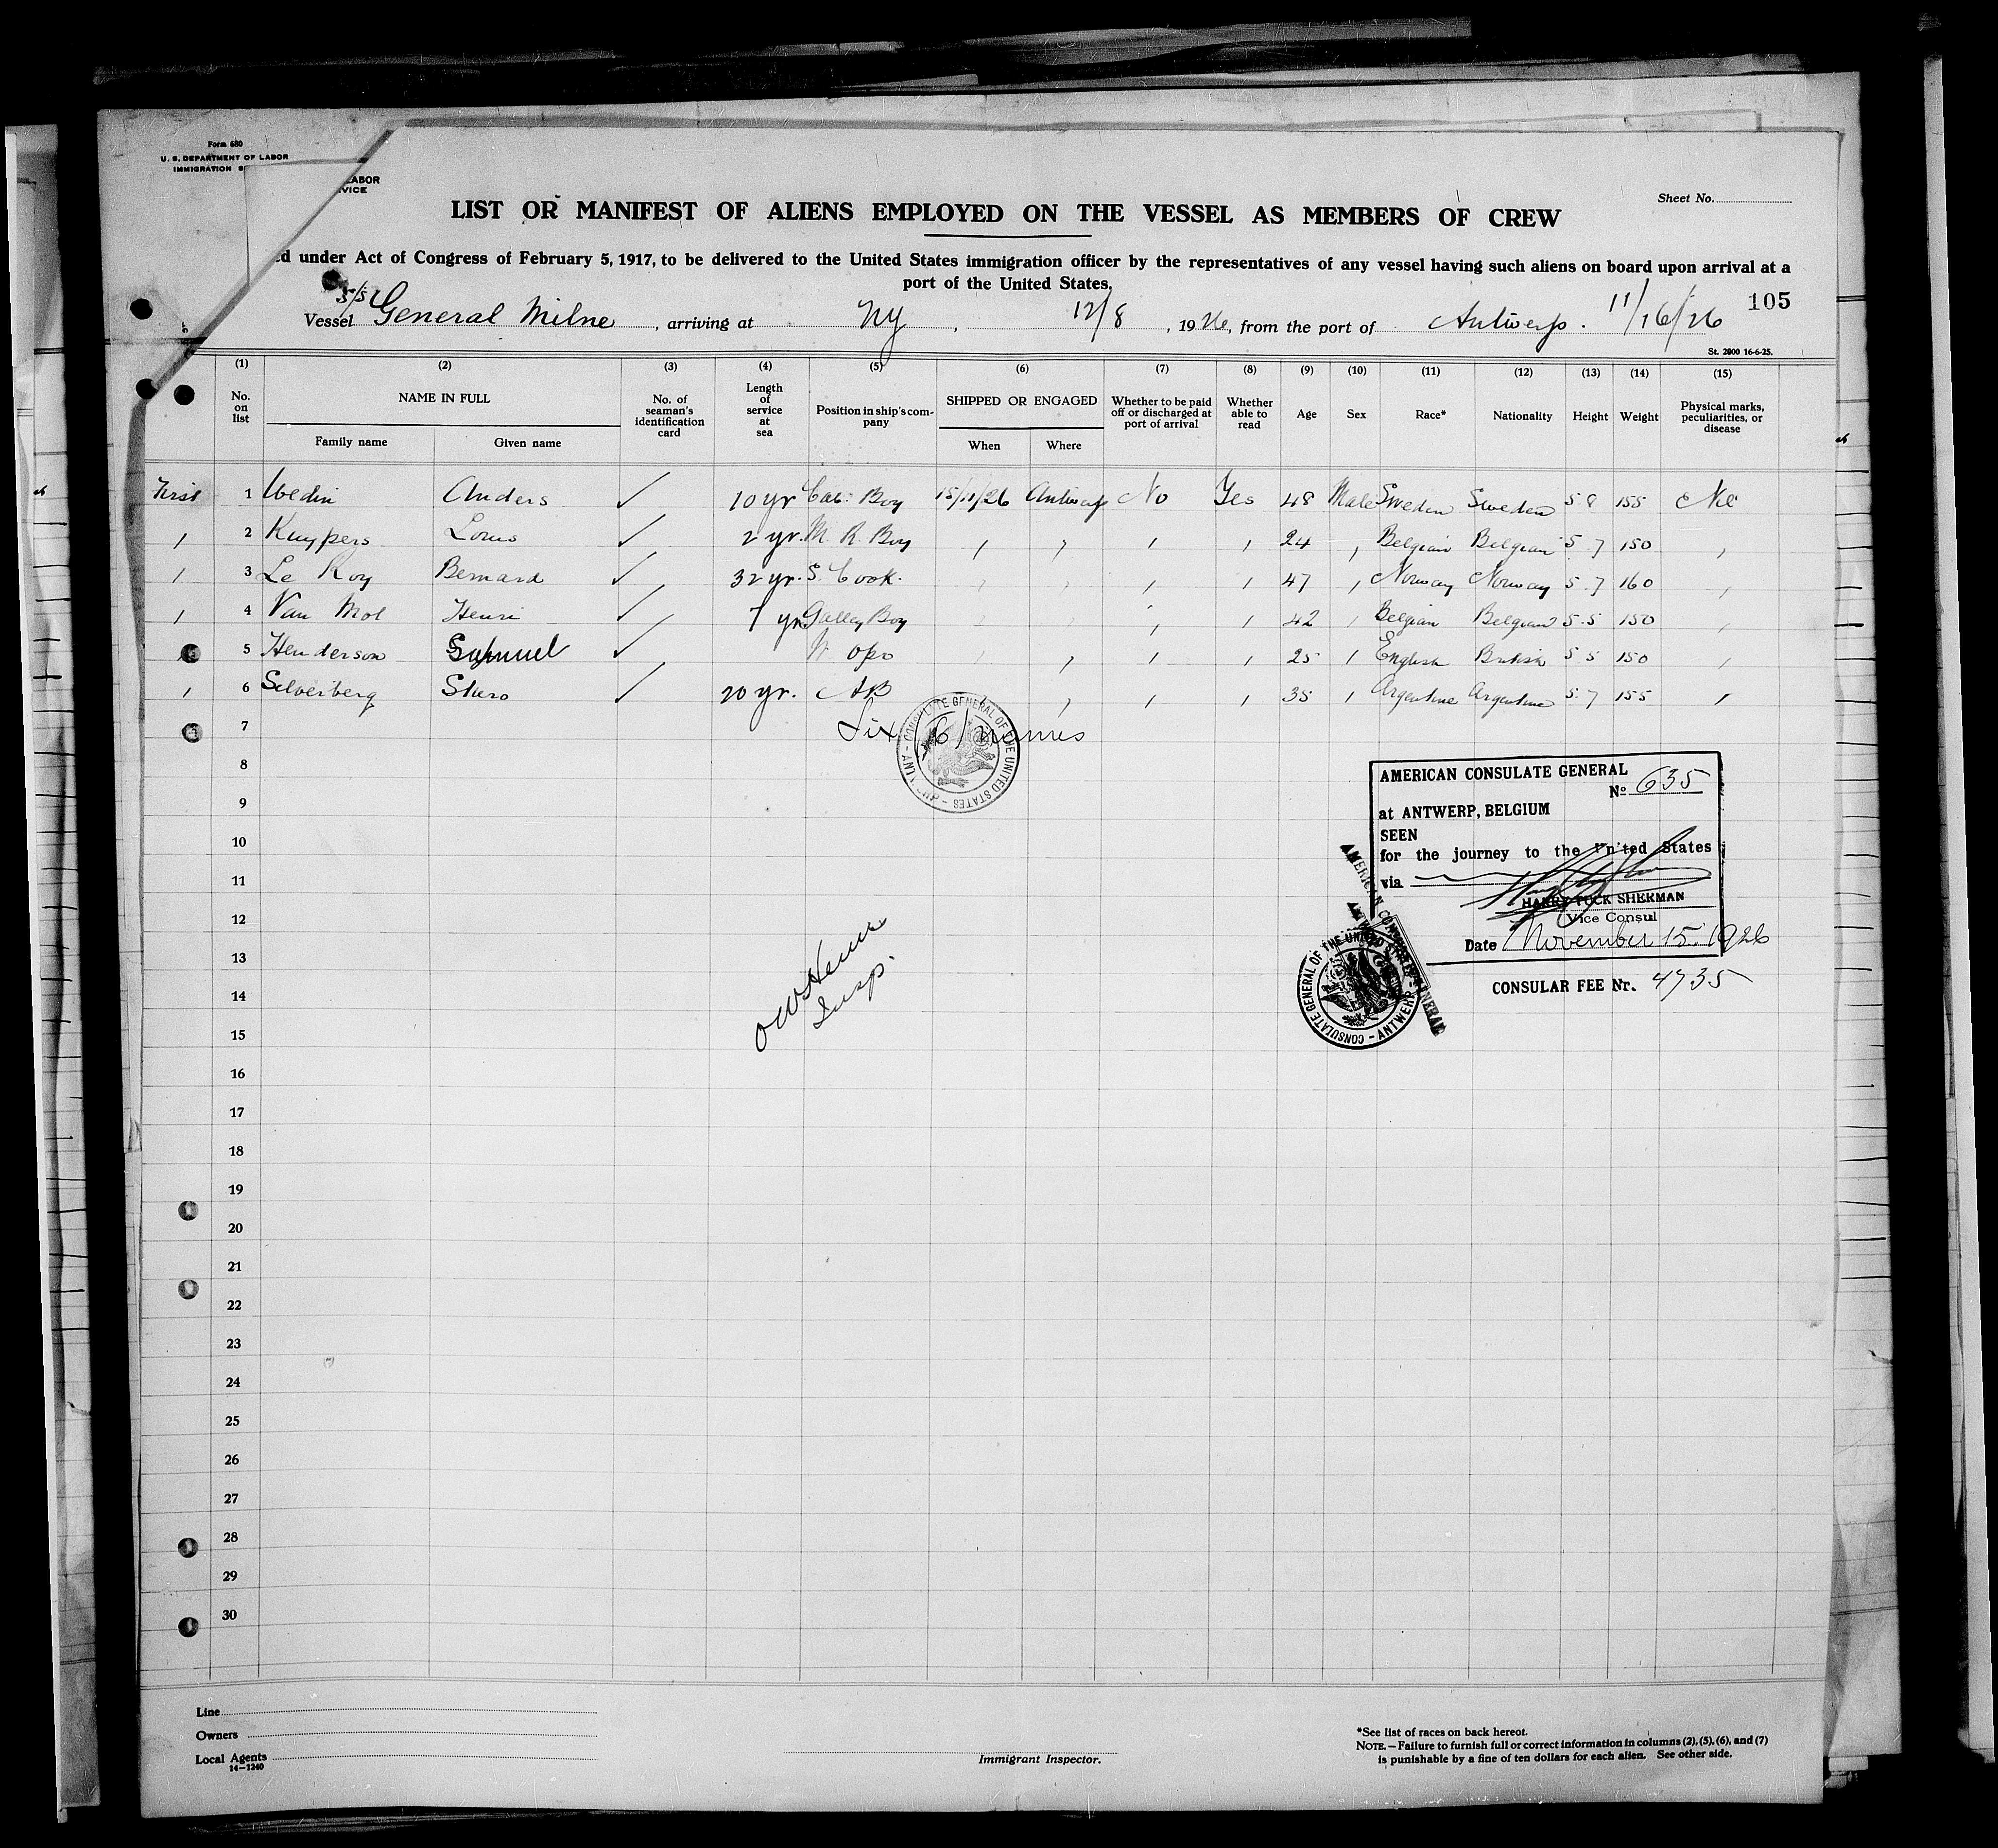 Form 680
U. S. DEPARTMENT OF LABOR
IMMIGRATION S
LABOR
VICE
Sheet No.
LIST OR MANIFEST OF ALIENS EMPLOYED ON THE VESSEL AS MEMBERS OF CREW
d under Act of Congress of February 5, 1917, to be delivered to the United States immigration officer by the representatives of any vessel having such aliens on board upon arrival at a
port of the United States.
Vessel S/S General Milne, arriving at NY, 12/8, 1926, from the port of Antwerp. 11/16/26 105
St. 2000 16-6-25.
(1) (2) (3) (4) (5) (6) (7) (8) (9) (10) (11) (12) (13) (14) (15)
No. on list NAME IN FULL Family name Given name No. of seaman's identification card Length of service at sea Position in ship's company SHIPPED OR ENGAGED When Where Whether to be paid off or discharged at port of arrival Whether able to read Age Sex Race* Nationality Height Weight Physical marks, peculiarities, or disease
First 1 Wedin Anders ✓ 10 yr Cab. Boy 15/11/26 Antwerp No Yes 48 Male Sweden Sweden 5 8 155 Nil
2 Kuypers Louis ✓ 2 yr. M. R. Boy 24 Belgian Belgian 5 7 150
3 Le Roy Bernard ✓ 32 yr. S. Cook. 47 Norway Norway 5.7 160
4 Van Mol Henri ✓ 7 yr Galley Boy 42 Belgian Belgian 5.5 150
5 Henderson Samuel ✓ W. opr 25 English British 5 5 150
6 Silverberg ✓ 20 yr. AB 35 Argentine Argentine 5.7 155
7 Six /6/ names
8
9
10
11
12
13
14
15
16
17
18
19
20
21
22
23
24
25
26
27
28
29
30
CONSULATE GENERAL OF THE UNITED STATES
AMERICAN CONSULATE GENERAL
No 635
at ANTWERP, BELGIUM
SEEN
for the journey to the United States
via
HARRY TUCK SHERMAN
Vice Consul
Date November 15. 1926
CONSULAR FEE Nr. 4735
AMERICAN CONSULATE GENERAL
ANTWERP
CONSULATE GENERAL OF THE UNITED STATES - ANTWERP
Insp.
Line
Owners
Local Agents
14-1240
Immigrant Inspector.
*See list of races on back hereof.
NOTE.—Failure to furnish full or correct information in columns (2), (5), (6), and (7)
is punishable by a fine of ten dollars for each alien. See other side.